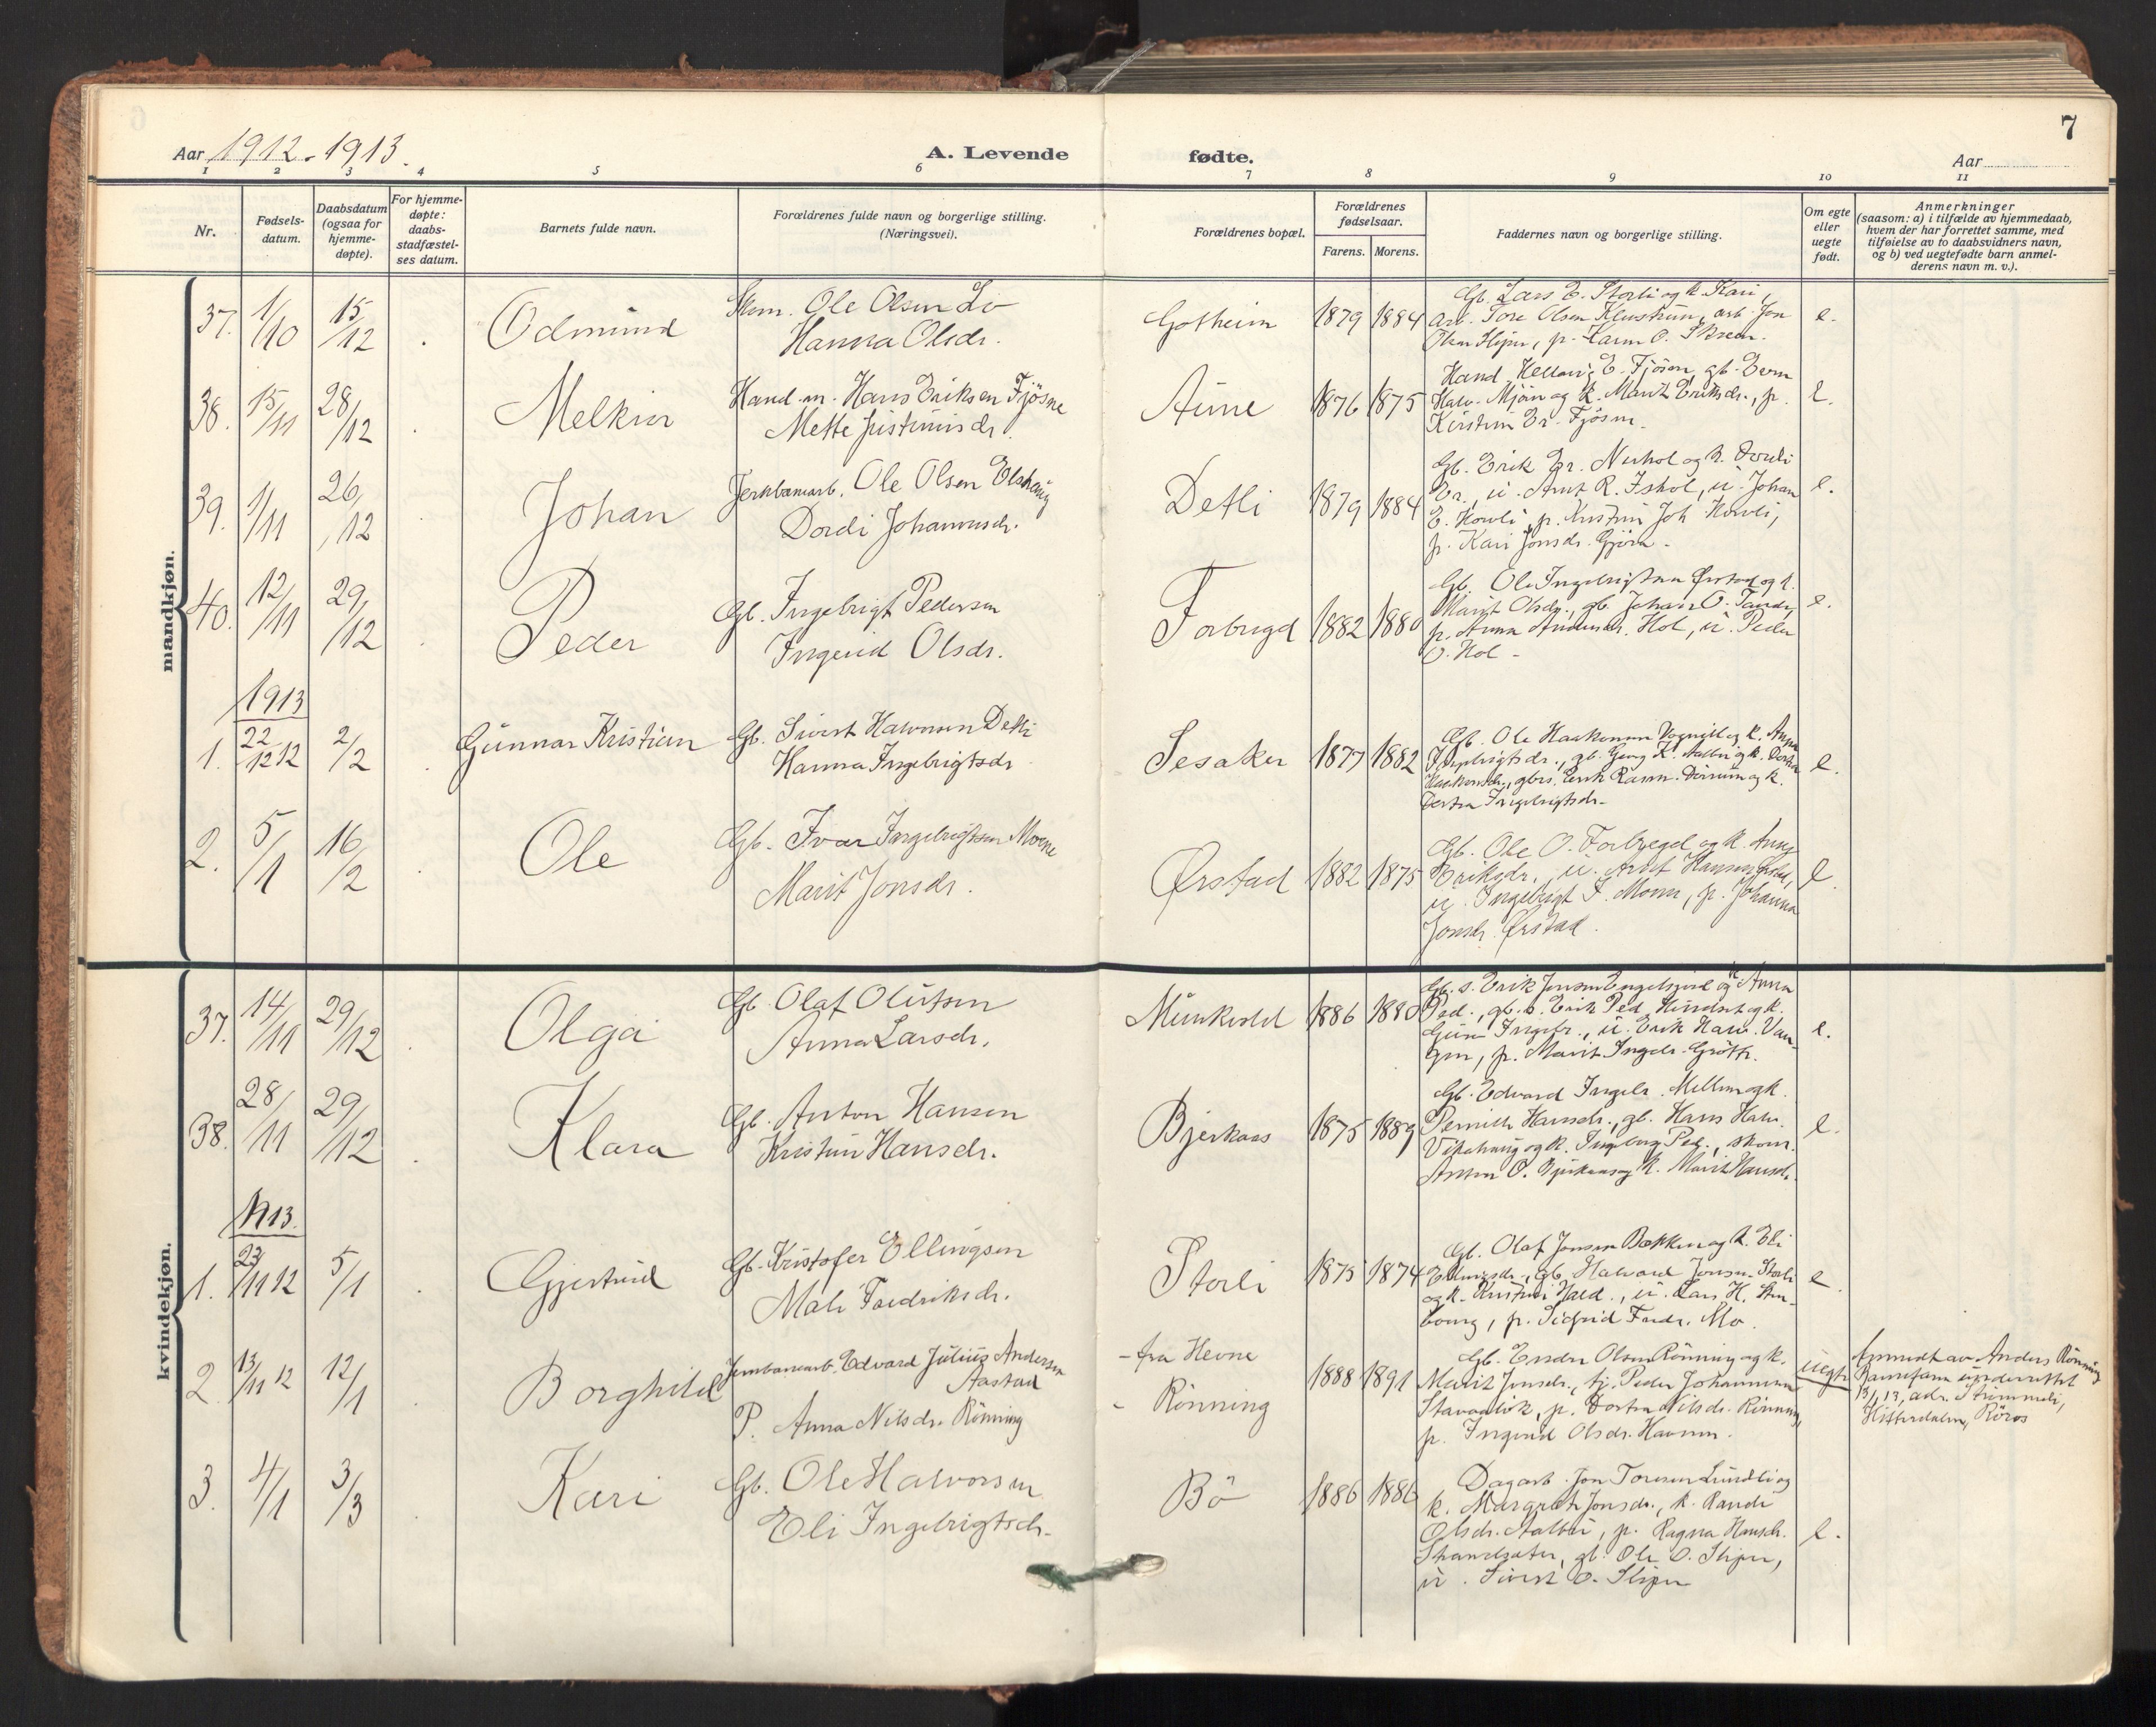 7
Aar 1912-1913.
A. Levende fødte.
Aar
1 2 3 4 5 6 7 8 9 10 11
Nr.
Fødsels-
datum.
Daabsdatum
(ogsaa for
hjemme-
døpte).
For hjemme-
døpte:
daabs-
stadfæstel-
ses datum.
Barnets fulde navn.
Forældrenes fulde navn og borgerlige stilling.
(Næringsvei).
Forældrenes bopæl.
Forældrenes
fødselsaar.
Farens. Morens.
Faddernes navn og borgerlige stilling.
Om egte
eller
uegte
født.
Anmerkninger
(saasom: a) i tilfælde av hjemmedaab,
hvem der har forrettet samme, med
tilføielse av to daabsvidners navn,
og b) ved uegtefødte barn anmel-
derens navn m. v.).
mandkjøn.
37. 1/10 15/12 Odmund
Ole Olsen Lo
Hanna Olsdr.
Gotheim 1879 1884
Gb. Lars E. Storli og k. Kari,
arb. Tore Olsen arb. Jon
Olsen p. Karen O.
e.
38. 15/11 28/12 Melkior
Hand.m. Hans Eriksen Fjøsne
Mette
Aune 1876 1875
Hand. E. Fjøsne, gb. Even
Halv. Mjøen og k. Marit Eriksdr., p.
Kirstin Er. Fjøsne.
e.
39. 1/11 26/12 Johan
Jernbanearb. Ole Olsen Elshaug
Dordi Johannesdr.
Detli 1879 1884
Gb. Erik Er. og k. Dordi
Er., u. Arnt R. u. Johan
E. p. Kristin Joh.
p. Kari Jonsdr. Gjøra.
e.
40. 12/11 29/12 Peder
Gb. Ingebrigt Pedersen
Ingerid Olsdr.
Forbregd 1882 1880
Gb. Ole Ingebrigtsen Ørstad og k.
Marit Olsdr., gb. Johan O.
p. Anna Hol, u. Peder
O. Hol.
e.
1913
1. 22/12 12 2/2 Gunnar Kristian
Gb. Sivert Halvorsen Detli
Hanna Ingebrigtsdr.
Sesaker 1877 1882
Gb. Ole Haakonsen Vognild og k. Anne
Ingebrigtsdr., gb. Georg K. Aalbu og k. Dortea
Haakonsdr., gbrs. Erik Rasm. Dørum og k.
Dortea Ingebrigtsdr.
e.
2. 5/1 16/2 Ole
Gb. Ivar Ingebrigtsen Moene
Marit Jonsdr.
Ørstad 1882 1875
Gb. Ole O. Forbregd og k. Anne
Eriksdr., u. Arnt Hansen Ørstad,
u. Ingebrigt I. Moen, p. Johanna
Jonsdr. Ørstad.
e.
kvindekjøn.
37. 14/11 29/12 Olga
Gb. Olaf Olufsen
Anna Larsdr.
Munkvold 1886 1880
Gb. s. Erik Jonsen Engelsjord og Anna
Ped., gb. s. Erik Ped. og k.
Guri Ingebr., u. Erik Halv. Van-
gen, p. Marit Ingebr.
e.
38. 28/11 29/12 Klara
Gb. Anton Hansen
Kristin Hansdr.
Bjerkaas 1875 1889
Gb. Edvard Ingebr. Mellem og k.
Pernille Hansdr., gb. Hans Halv.
Vikahaug og k. Ingeborg Ped., skom.
Anton O. Bjerkaas og k. Marit Hansdr.
e.
1913.
1. 23/11 12 5/1 Gjertrud
Gb. Kristofer Ellingsen
Mali Fredriksdr.
Storli 1875 1874
Gb. Olaf Jonsen Bakken og k. Eli
Ellingsdr., gb. Halvard Jonsen Storli
og k. Kristine Hald., u. Lars H.
p. Sigfrid Fredr. Mo.
e.
2. 13/11 12 12/1 Borghild
Jernbanearb. Edvard Julius Andersen
Aastad
P. Anna Nilsdr. Rønning
- fra Hevne
- Rønning
1888 1891
Gb. Endre Olsen Rønning og k.
Marit Jonsdr., tj. Peder Johannesen
p. Dortea Nilsdr. Rønning,
p. Ingerid Olsdr. Havnen.
uegte
Anmeldt av Anders Rønning
Barnefarn underrettet
13/1 13, adr.
Hitterdalen, Røros
3. 4/1 3/3 Kari
Gb. Ole Halvorsen
Eli Ingebrigtsdr.
Bö 1886 1886
Dagarb. Jon Toresen Lundli og
k. Margrete Jonsdr., k. Randi
Olsdr. Aalbu, p. Ragna Hansdr.
gb. Ole O. Slipen,
u. Sivert O. Slipen
e.